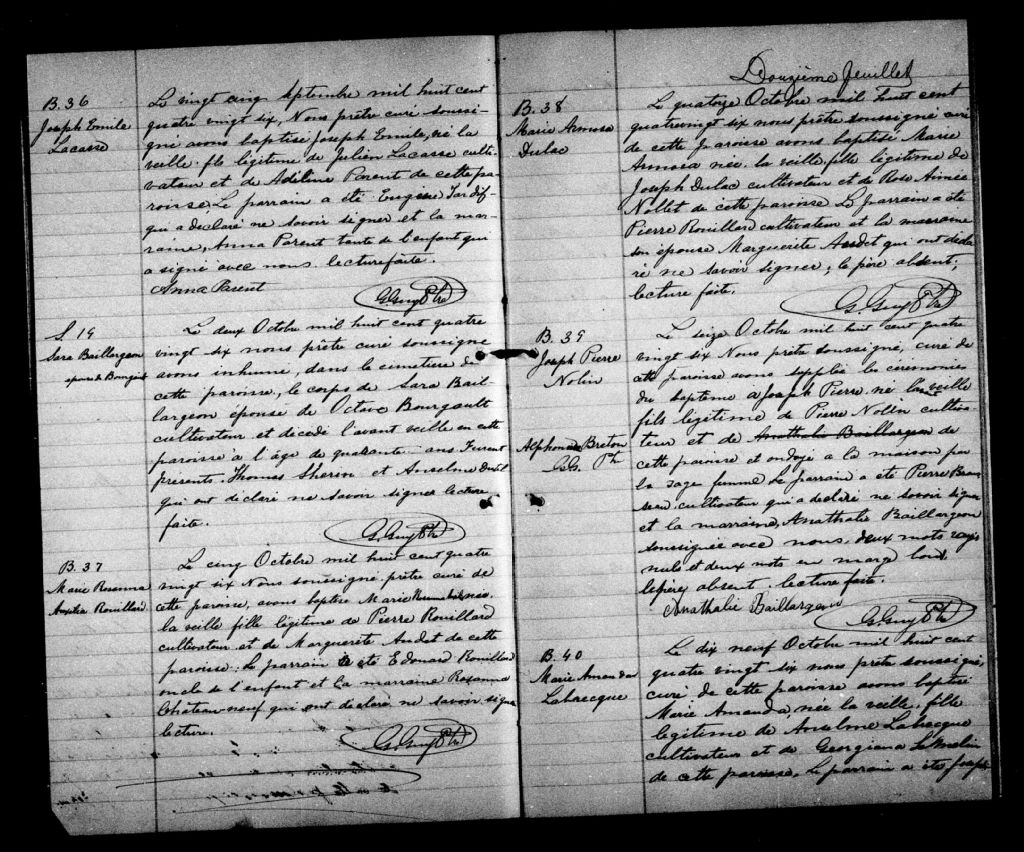 B. 36
Joseph Emile
Lacasse
Le vingt cinq septembre mil huit cent
quatre vingt six, Nous prêtre curé soussi-
gné avons baptisé Joseph Emile, né la
veille. fils légitime de Julien Lacasse culti-
vateur et de Adéline Parent de cette pa-
roisse. Le parrain a été Eugène Tardif
qui a déclaré ne savoir signer et la mar-
raine, Anna Parent tante de l'enfant qui
a signé avec nous. lecture faite.
Anna Parent
G. Guy Ptre
S. 19
Sara Baillargeon
épouse de Bourgault
Le deux Octobre mil huit cent quatre
vingt six nous prêtre curé soussigné
avons inhumé, dans le cimetière de
cette paroisse, le corps de Sara Bail-
largeon épouse de Octave Bourgault
cultivateur et décédé l'avant veille en cette
paroisse a l'âge de quarante ans Furent
présents. Thomas et Anselme
qui ont déclaré ne savoir signer lecture
faite.
G. Guy Ptre
B. 37
Marie Rosanna
Amelia Rouillard
Le cinq Octobre mil huit cent quatre
vingt six Nous soussigné prêtre curé de
cette paroisse, avons baptisé Marie Rosanna née
la veille fille légitime de Pierre Rouillard
cultivateur et de Marguerite Audet de cette
paroisse. Le parrain a été Edouard Rouillard
oncle de l'enfant et la marraine Rosanna
Chateau-neuf qui ont déclaré ne savoir signer
lecture.
G. Guy Ptre
Douzième feuillet
B. 38
Marie Armosa
Dulac
Le quatorze Octobre mil huit cent
quatrevingt six nous prêtre soussigné curé
de cette paroisse avons baptisé Marie
Armosa née la veille, fille légitime de
Joseph Dulac cultivateur et de Rose Aimée
Nollet de cette paroisse Le parrain a été
Pierre Rouillard cultivateur et la marraine
son épouse Marguerite Audet qui ont décla-
ré ne savoir signer, le père absent;
lecture faite.
G. Guy Ptre
B. 39
Joseph Pierre
Nolin
Le seize Octobre mil huit cent quatre
vingt six Nous prêtre soussigné, curé de
cette paroisse avons suppléé les cérémonies
du baptême a Joseph Pierre né la veille
fils légitime de Pierre Nolin cultiva-
teur et de Anathalie Baillargeon de
Alphonsine Breton
G.G. Ptr
cette paroisse et ondoyé a la maison par
la sage femme Le parrain a été Pierre
cultivateur qui a déclaré ne savoir signer
et la marraine, Anathalie Baillargeon
soussignée avec nous. deux mots rayés
nuls et deux mots en marge bons
le père absent. lecture faite.
Anathalie Baillargeon
G. Guy Ptre
B. 40
Marie Amanda
Labrecque
Le dix neuf Octobre mil huit cent
quatre vingt six nous prêtre soussigné,
curé de cette paroisse avons baptisé
Marie Amanda, née la veille, fille
légitime de Anselme Labrecque
cultivateur et de Georgiana
de cette paroisse. Le parrain a été Joseph